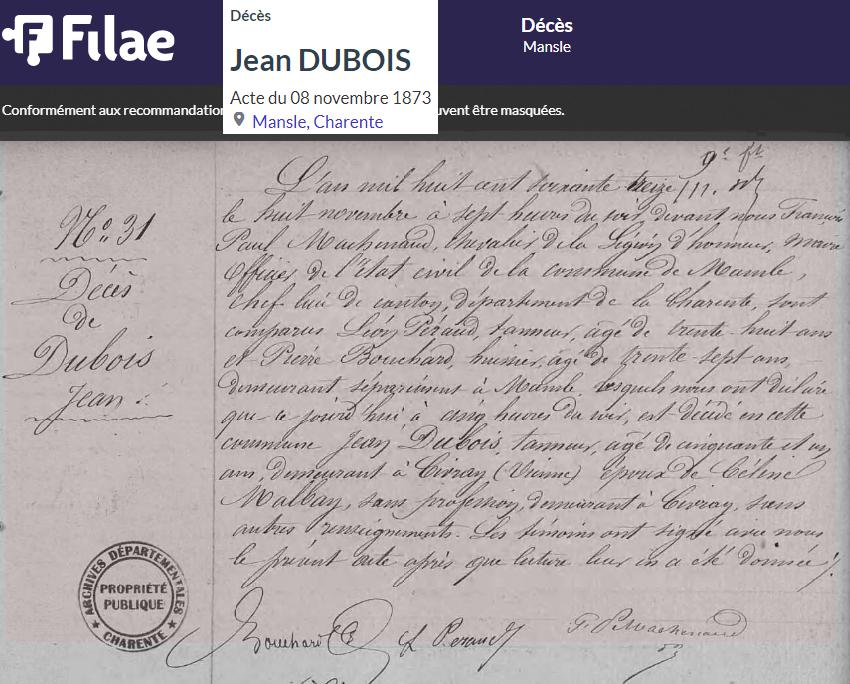 Filae
Décès
Jean DUBOIS
Acte du 08 novembre 1873
Mansle, Charente
Décès
Mansle
Conformément aux recommandation
uvent être masquées.
Nº 31
Décès
de
Dubois
Jean
L'an mil huit cent soixante treize
le huit novembre à sept heures du soir, devant nous François
Paul Machenaud, chevalier de la Légion d'honneur, maire
Officier de l'état civil de la commune de Mansle,
chef lieu de canton, département de la Charente, sont
comparus Léon Péraud, tanneur, âgé de trente-huit ans
et Pierre Bouchard, huissier, âgé de trente-sept ans,
demeurant séparément à Mansle, lesquels nous ont déclaré
que ce jourd'hui à cinq heures du soir, est décédé en cette
commune Jean Dubois, tanneur, âgé de cinquante et un
ans, demeurant à Civray (Vienne) époux de Céline
Malbay, sans profession, demeurant à Civray, sans
autres renseignements. Les témoins ont signé avec nous
le présent acte après que lecture leur en a été donnée
Bouchard L Peraud F. P. Machenaud
ARCHIVES DÉPARTEMENTALES
PROPRIÉTÉ
PUBLIQUE
CHARENTE